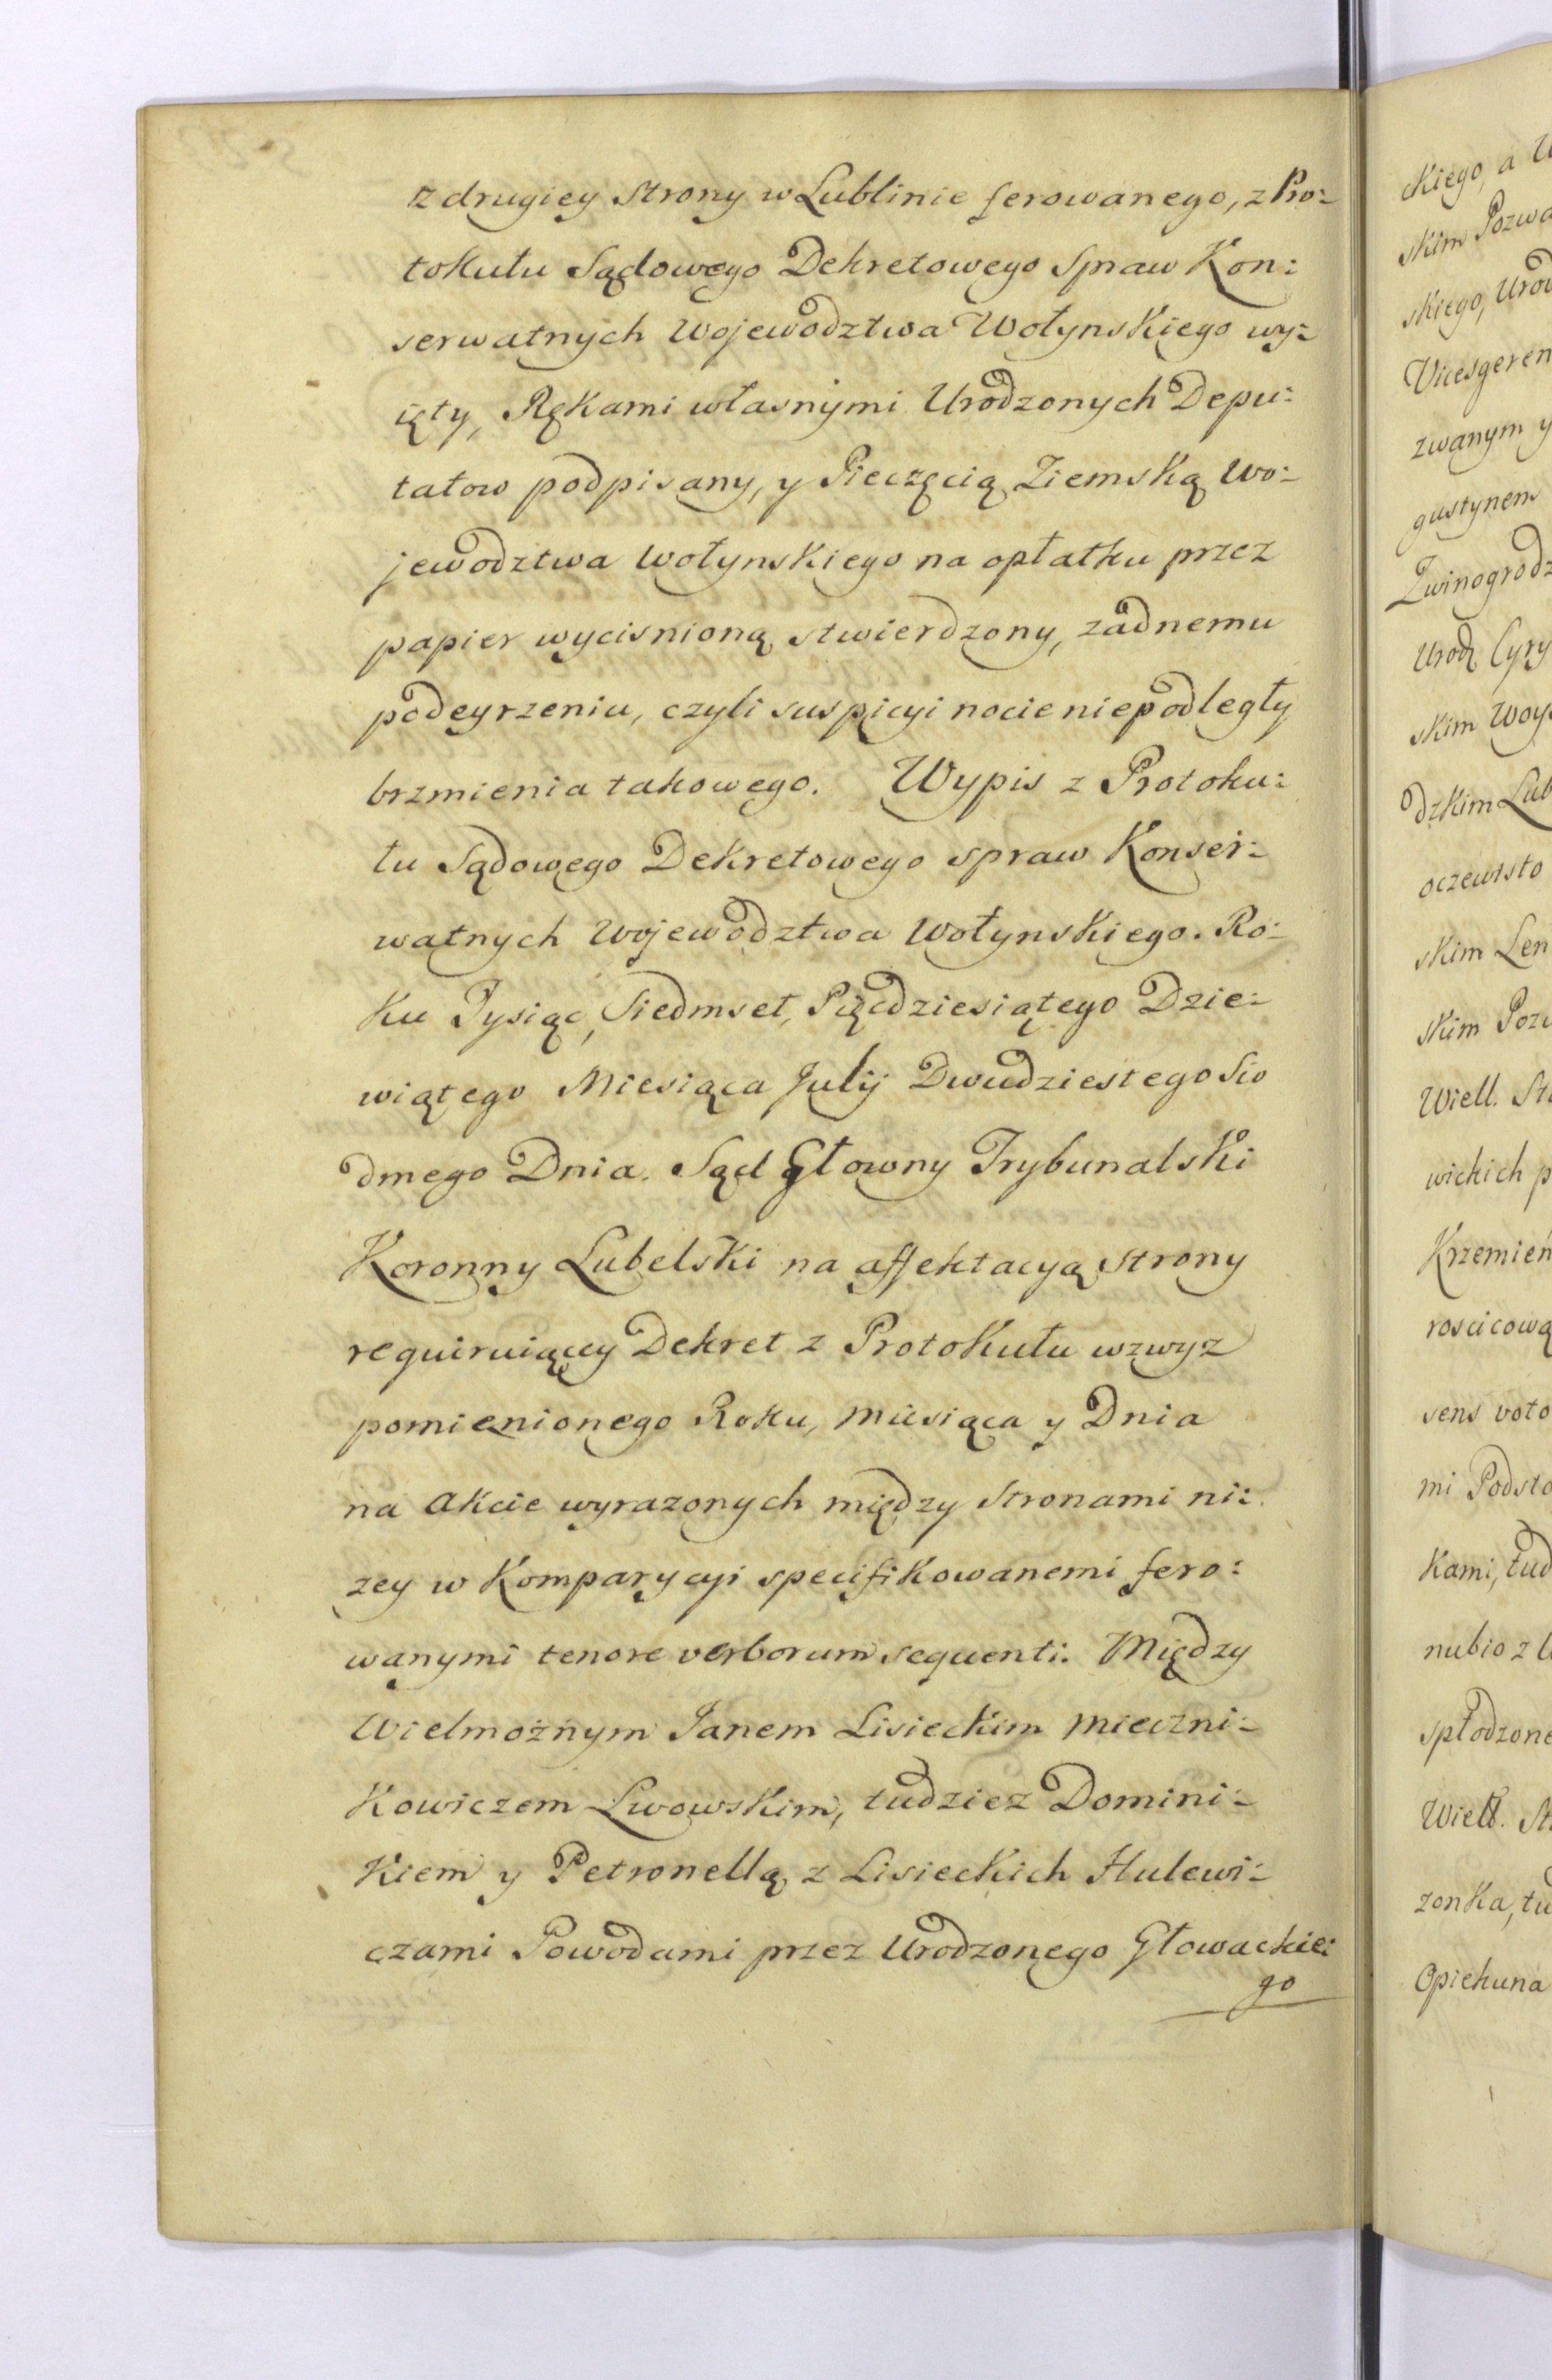 z drugiey Strony w Lublinie ferowanego, z Pro:
tokułu Sądowego Dekretowego Spraw Kon:
serwatnych Wojewodztwa Wołynskiego wy:
ięty, Rękami własnymi Urodzonych Depu:
tatow podpisany, y Pieczęcią Ziemską Wo:
jewodztwa Wołynskiego na opłatku przez
papier wycisnioną stwierdzony, zadnemu
podeyrzeniu, czyli suspicyi nocie niepodległy
brzmienia takowego. Wypis z Protoku:
łu Sądowego Dekretowego spraw Konser:
watnych Wojewodztwa Wołynskiego. Ro:
ku Tysiąc, Siedmset, Pięcdziesiątego Dzie:
wiątego Miesiąca Julij Dwudziestego Sio
dmego Dnia. Sąd Głowny Trybunalski
Koronny Lubelski na affektacyą Strony
requiruiącey Dekret z Protokułu wzwyz
pomienionego Roku, Miesiąca y Dnia
na Akcie wyrazonych między Stronami ni:
zey w Komparycyi specifikowanemi fero:
wanymi tenore verborum sequenti. Między
Wielmożnym Janem Lisieckim Mieczni:
kowiczem Lwowskim, tudziez Domini:
kiem y Petronellą z Lisieckich Hulewi:
czami Powodami przez Urodzonego Głowackie:
go
kiego, a
skim
skiego,
Vicesgeren
zwanym y
gustynem
Zwinogrodz
Urodz Cyry
skim Woy
dzkim Lub
oczewisto
skim Len
skim
Wiell.
wickich p
Krzemień
roscicową
sens voto
mi Podsto
kami, tud
nubio z
spłodzone
Wiell.
zonka, tu
Opiekuna